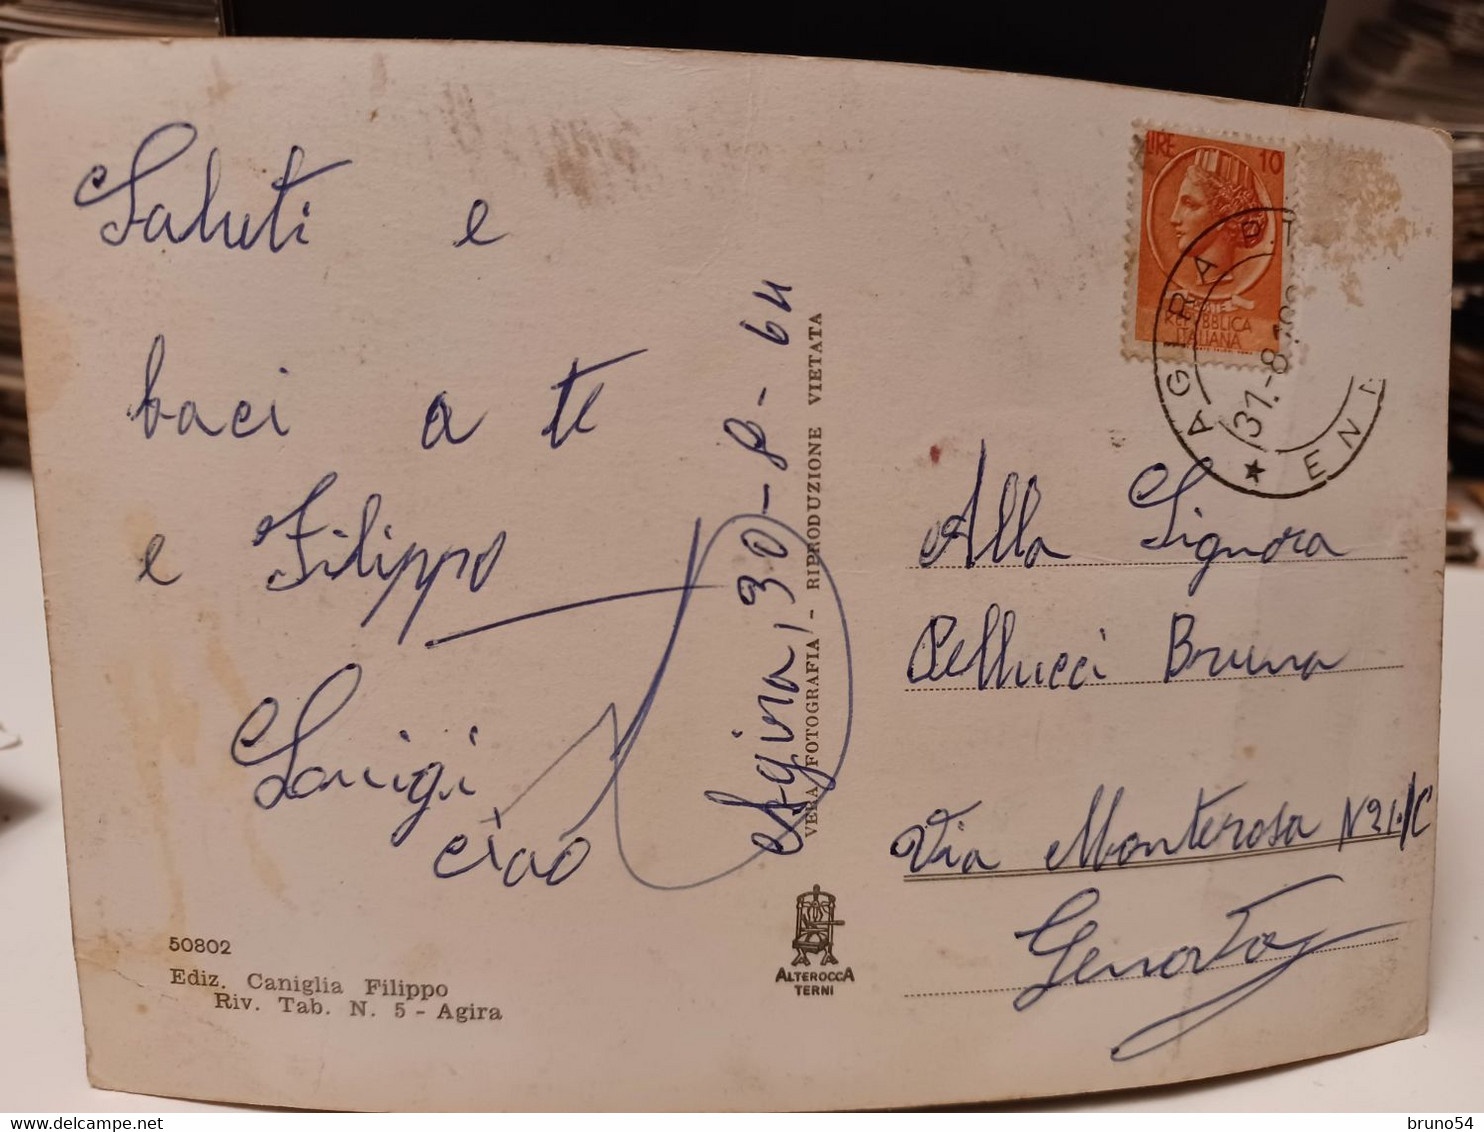 Saluti e
baci a te
e Filippo
Luigi
ciao
Agira, 30-8-64
VERA FOTOGRAFIA - RIPRODUZIONE VIETATA
50802
Ediz. Caniglia Filippo
Riv. Tab. N. 5 - Agira
ALTEROCCA
TERNI
LIRE 10
POSTE
REPVBBLICA
ITALIANA
AGIRA
31.-8.
Alla Signora
Pellucci Bruna
Via Monterosa
bruno54